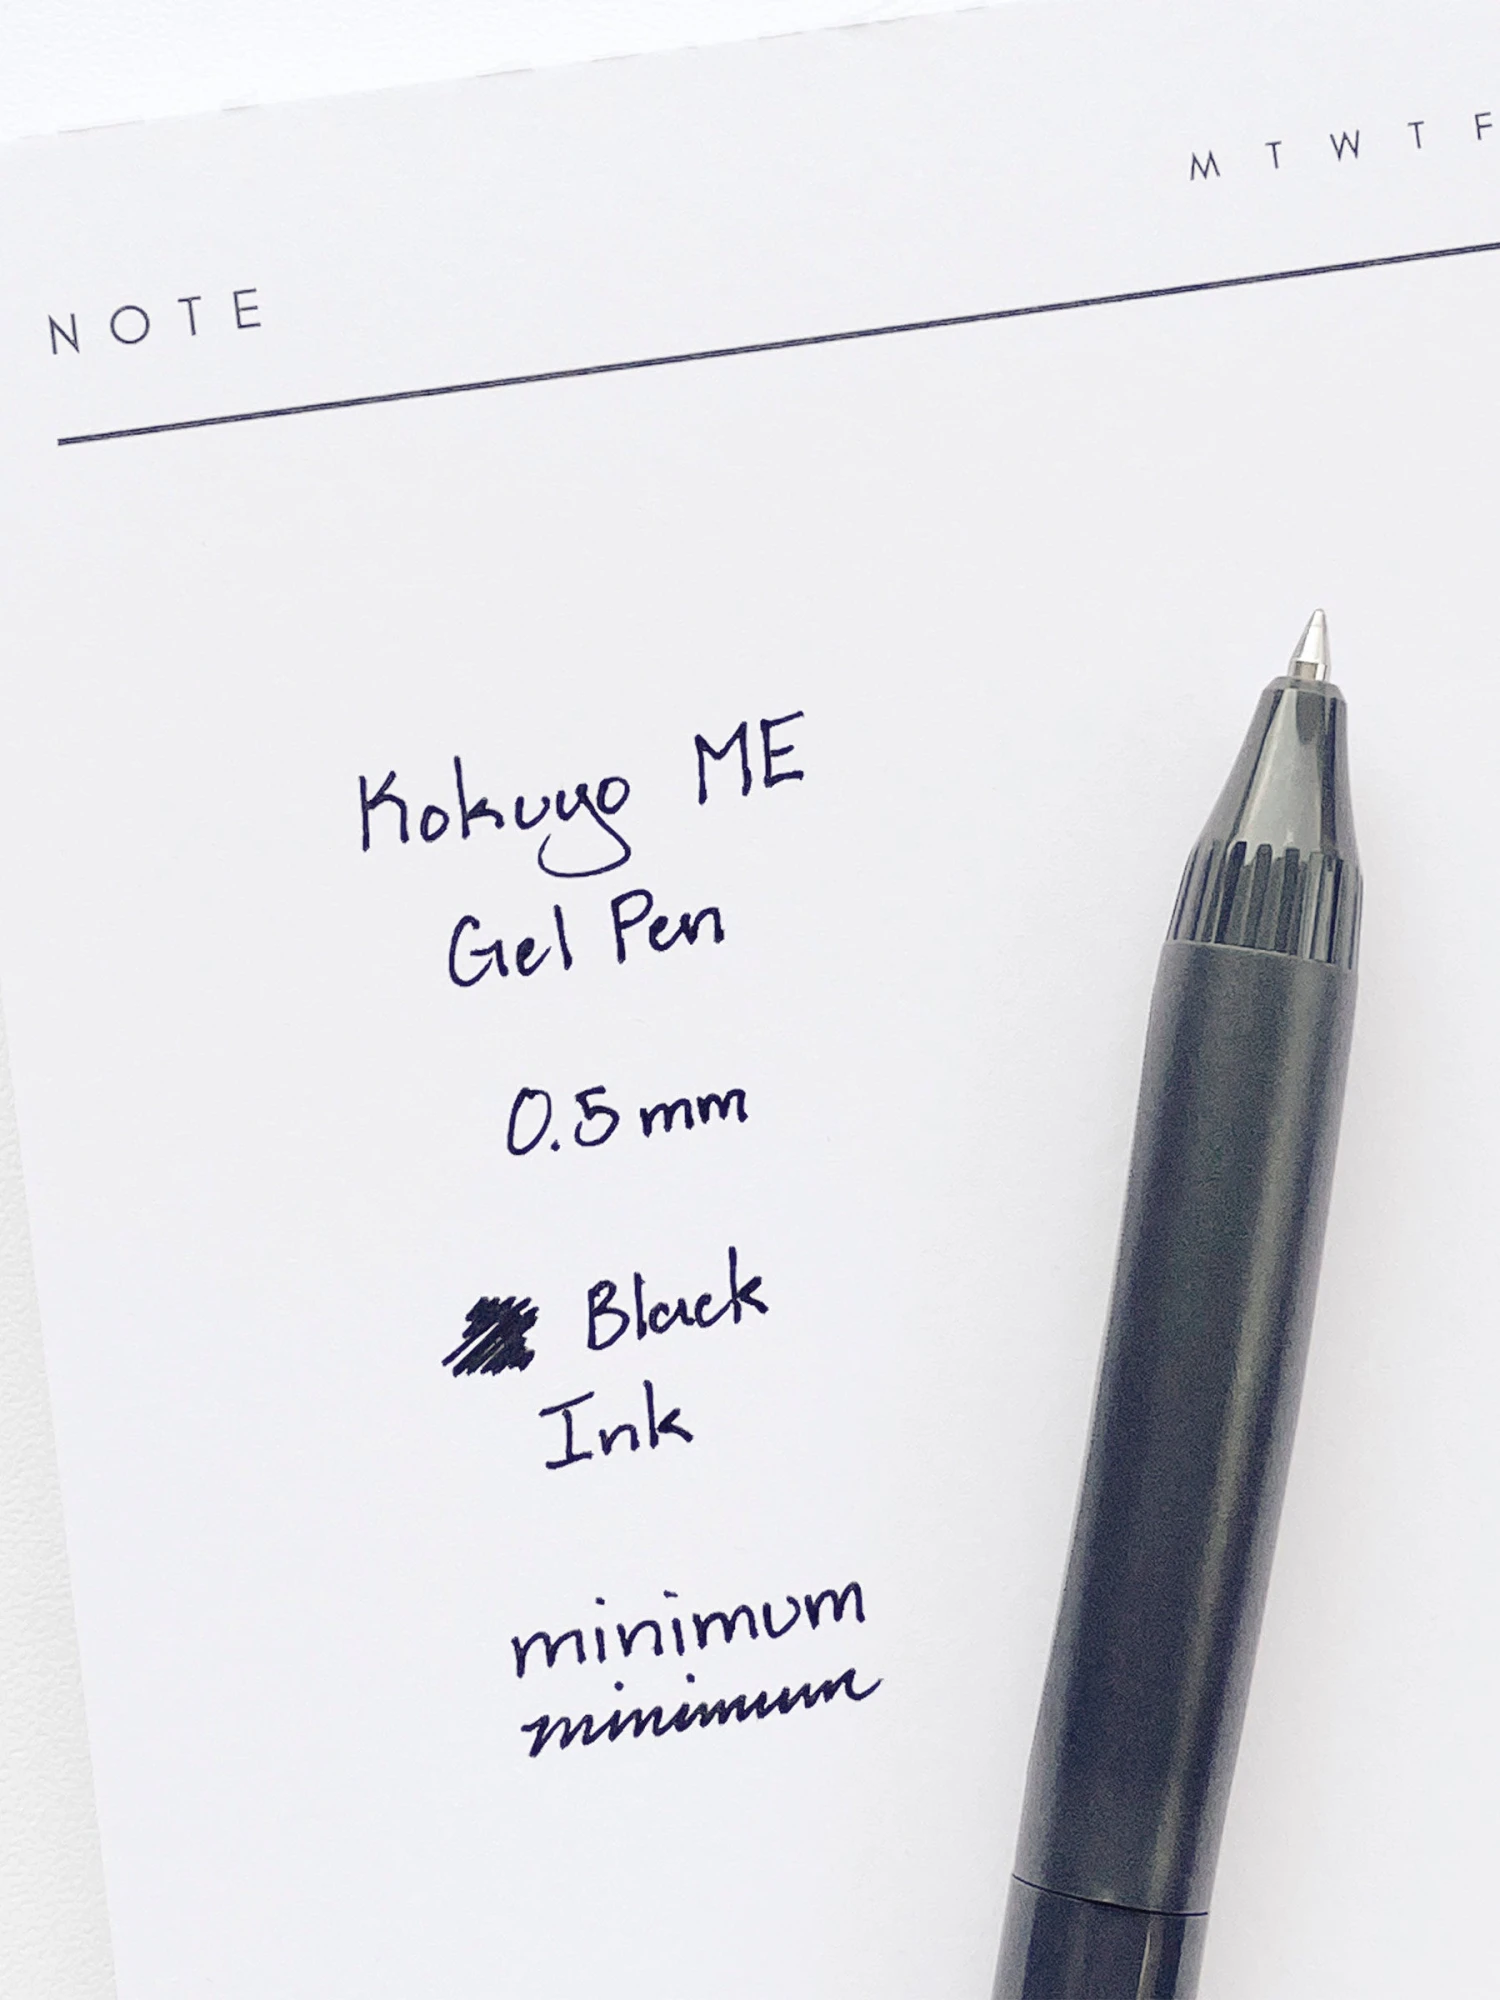 M T W T F
NOTE
Kokuyo ME
Gel Pen
0.5mm
Black
Ink
minimum
minimum